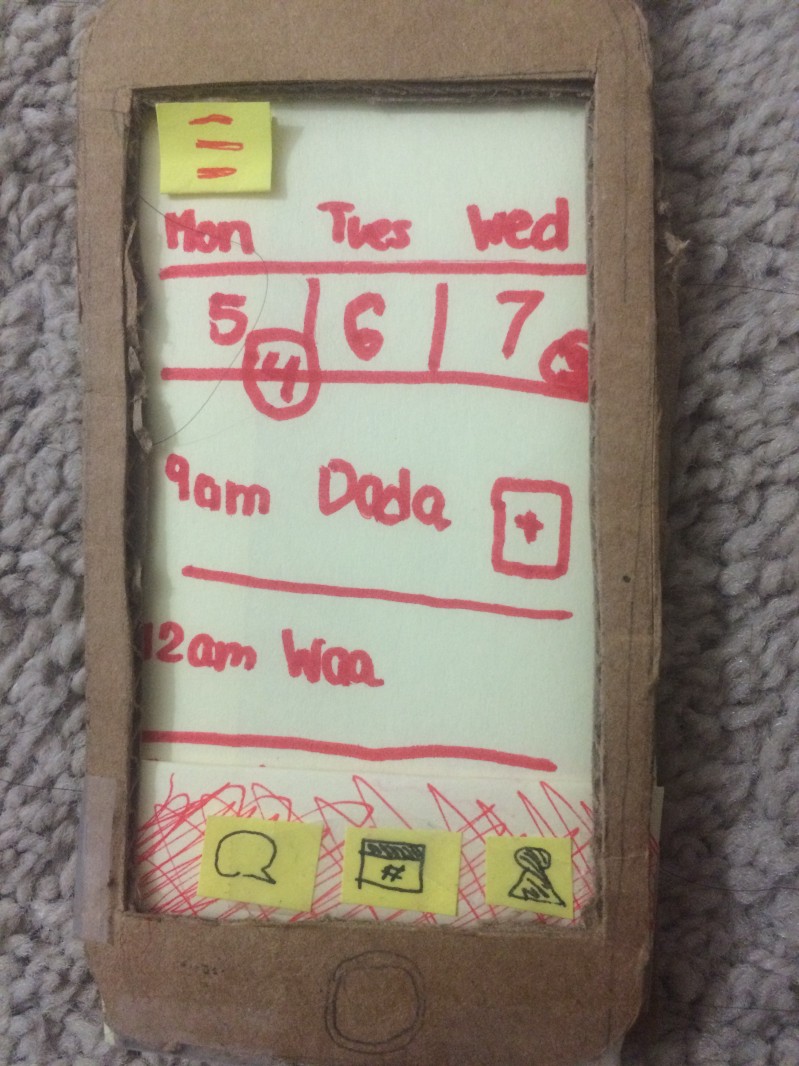 Mon Tues Wed
5 6 7
4
9am Dada +
12am Waa
#